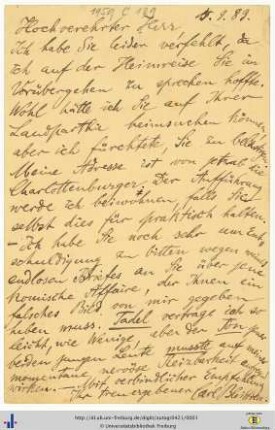 1959 C 139
5.9.89.
Hochverehrter Herr
Ich habe Sie leider verfehlt, da
ich auf der Heimreise Sie im
Vorübergehen zu sprechen hoffte.
Wohl hätte ich Sie auf Ihrer
Landparthie heimsuchen können,
aber ich fürchtete, Sie zu belästigen
Meine Adresse ist von
Charlottenburger. Der Aufführung
werde ich beiwohnen, falls Sie
selbst dies für praktisch halten.
– Ich habe Sie noch sehr um Ent-
schuldigung zu bitten wegen meines
endlosen Briefes an Sie über jene
komische Affaire, der Ihnen ein
falsches Bild von mir gegeben
haben muss. Tadel vertrage ich so
leicht, wie Wenige, aber der Ton jener
beiden jungen Leute musste auf meine
momentane, nervöse Reizbarkeit
wirken. – Mit verbindlicher Empfehlung
Ihr treu ergebener Carl
http://dl.ub.uni-freiburg.de/diglit/
© Universitätsbibliothek Freiburg